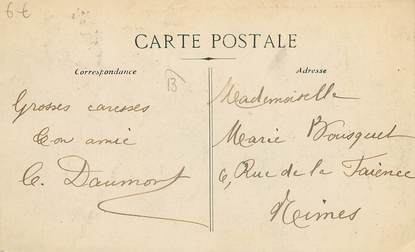 6 €
CARTE POSTALE
Correspondance
Adresse
B
Grosses caresses
Ton amie
C. Daumont
Mademoiselle
Marie Bousquet
6, Rue de la Faïence
Nimes